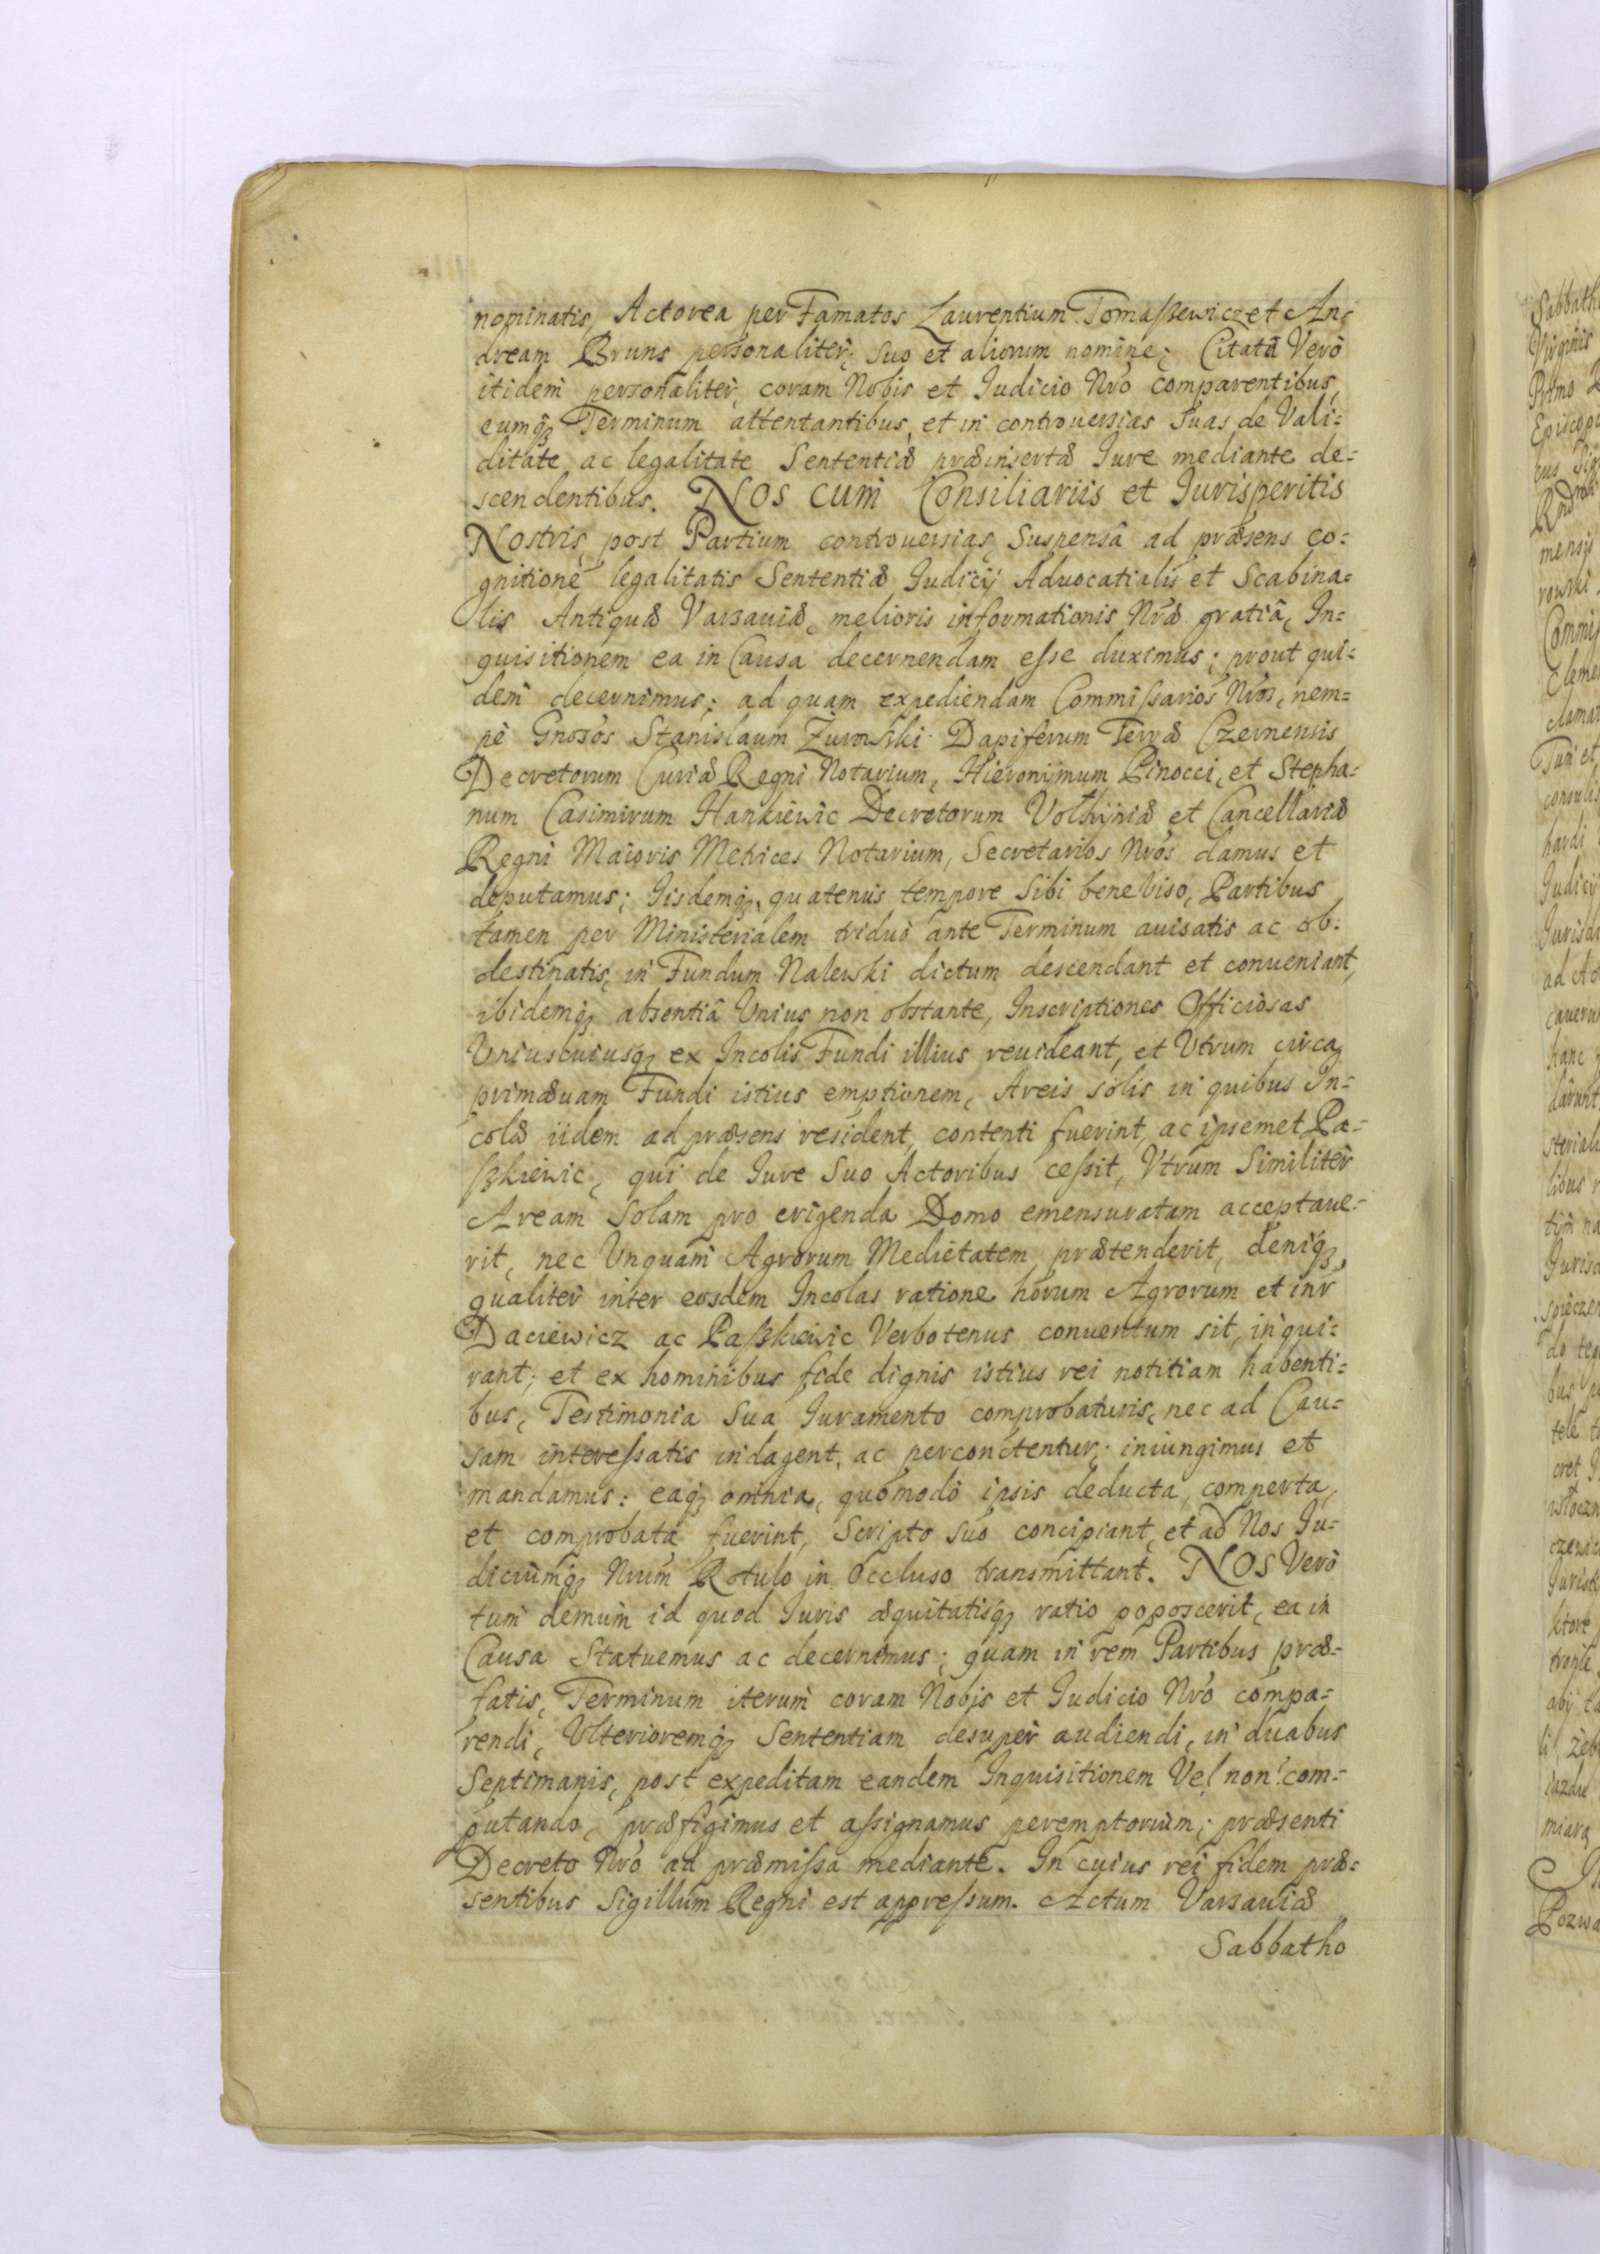 nominatis, Actorea per Famatos Laurentium Tomaszewicz et An-
dream Bruns personaliter, suo et aliorum nomine; Citata Verò
itidem personaliter, coram Nobis et Iudicio Nrõ comparentibus,
eumq3 Terminum attentantibus, et in controuersias suas de Vali-
ditate ac legalitate Sententiæ præinsertæ Iure mediante de-
scendentibus. NOS cum Consiliariis et Iurisperitis
Nostris, post Partium controuersias, Suspensâ ad præsens co-
gnitione legalitatis Sententiæ Iudicij Aduocatialis et Scabina-
lis Antiquæ Varsauiæ, melioris informationis Nræ gratiâ, In-
quisitionem ea in Causa decernendam eſse duximus; prout qui-
dem decernimus; ad quam expediendam Commiſsarios Nrõs, nem-
pè Gnosos Stanislaum Zurowski Dapiferum Terræ Czernensis
Decretorum Curiæ Regni Notarium, Hieronijmum Pinocci, et Stepha-
num Casimirum Hankiewic Decretorum Volhyniæ et Cancellariæ
Regni Maioris Metrices Notarium, Secretarios Nrõs damus et
deputamus; Iisdemq3, quatenus tempore sibi bene Viso, Partibus
tamen per Ministerialem triduò ante Terminum auisatis ac ob-
destinatis, in Fundum Nalewski dictum descendant et conueniant,
ibidemq3 absentiâ Vnius non obstante, Inscriptiones Officiosas
Vniuscuiusq3 ex Incolis Fundi illius reuideant, et Vtrum circa
primæuam Fundi istius emptionem, Areis solis in quibus In-
colæ iidem ad præsens resident, contenti fuerint, ac ipsemet Pa-
szkiewic, qui de Iure Suo Actoribus ceſsit, Vtrum Similiter
Aream Solam pro erigenda Domo emensuratam acceptaue-
rit, nec Vnquam Agrorum Medietatem prætenderit, deniq3,
qualiter inter eosdem Incolas ratione horum Agrorum et inr
Daciewicz ac Paszkiewic Verbotenus conuentum sit, inqui-
rant; et ex hominibus fide dignis istius rei notitiam habenti-
bus, Testimonia Sua Iuramento comprobaturis, nec ad Cau-
sam intereſsatis indagent, ac percontentur; iniungimus et
mandamus: eaq3 omnia, quomodo ipsis deducta, comperta,
et comprobata fuerint, Scripto suo concipiant, et ad Nos Iu-
diciumq3 Nrum Rotulo in occluso transmittant. NOS Verò
tum demum id quod Iuris æquitatisq3 ratio poposcerit, ea in
Causa Statuemus ac decernimus; quam in rem Partibus præ-
fatis, Terminum iterum coram Nobis et Iudicio Nrõ compa-
rendi, Vlterioremq3 Sententiam desuper audiendi, in duabus
Septimanis, post expeditam eandem Inquisitionem Vel non com-
putando, præfigimus et aſsignamus peremptorium; præsenti
Decreto Nrõ ad præmiſsa mediante. In cuius rei fidem præ-
sentibus Sigillum Regni est appreſsum. Actum Varsauiæ
Sabbatho